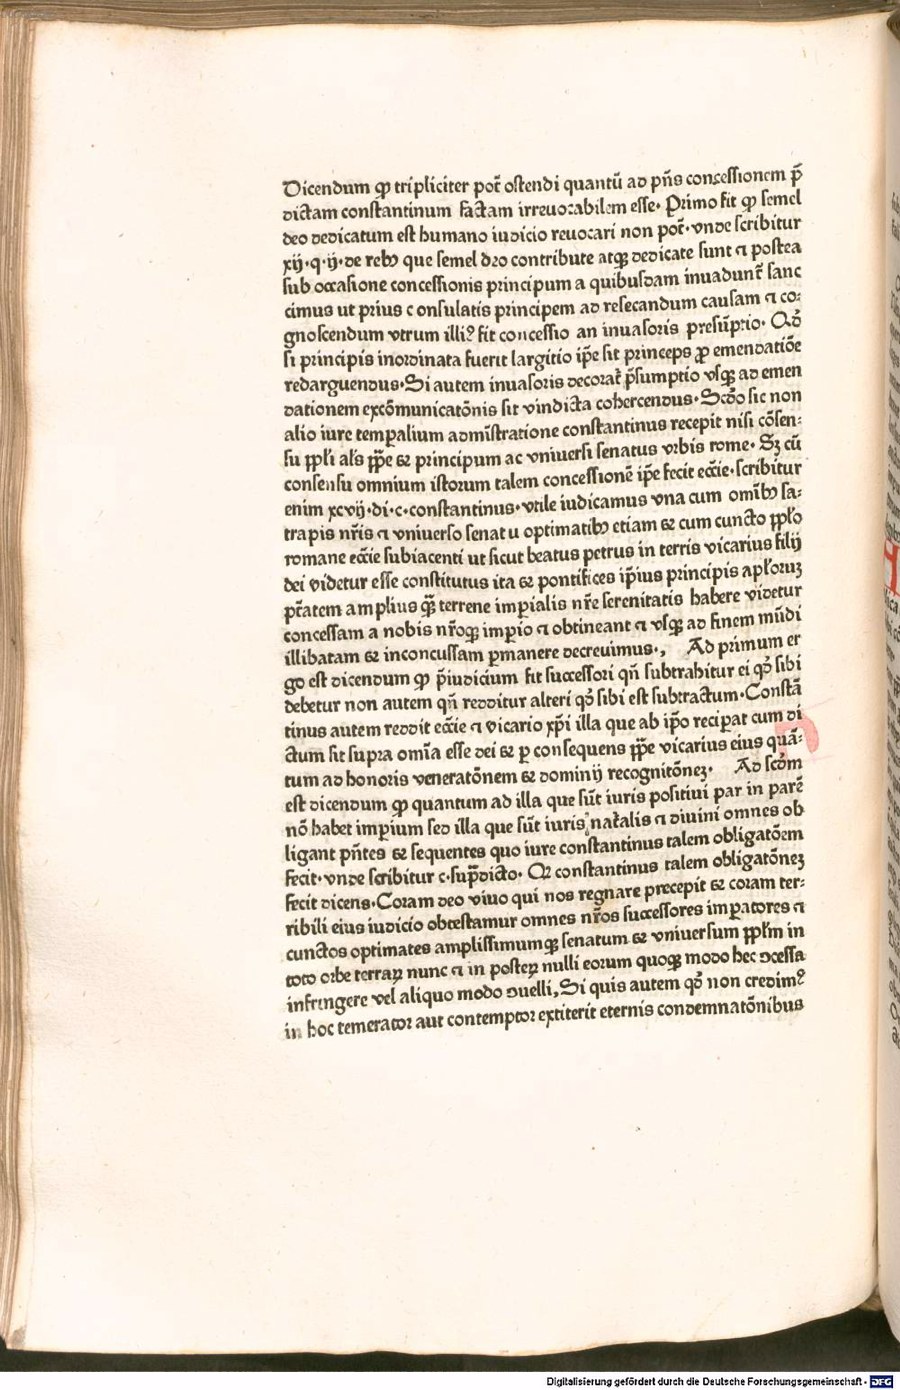 Dicendum ꝙ tripliciter pot̄ ostendi quantū ad pn̄s concessionem p̄
dictam constantinum factam irreuocabilem esse· Primo sit ꝙ semel
deo dedicatum est humano iudicio reuocari non pot̄· vnde scribitur
xij·q·ij·de rebꝰ que semel deo contribute atqꝫ dedicate sunt ⁊ postea
sub occasione concessionis principum a quibusdam inuadunt̄ sanc
cimus ut prius c onsulatis principem ad resecandum causam ⁊ co⸗
gnoscendum vtrum illiꝰ sit concessio an inuasoris presūptio· Qd̄
si principis inordinata fuerit largitio ip̄e sit princeps ꝓ emendatiōe
redarguendus·Si autem inuasoris decorat̄ p̄sumptio vsqꝫ ad emen
dationem excōmunicatōnis sit vindicta cohercendus·Scd̄o sic non
alio iure temꝑalium admīstratione constantinus recepit nisi cōsen⸗
su ꝓpl̄i al̄s ꝓp̄e ⁊ principum ac vniuersi senatus vrbis rome· Sꝫ cū
consensu omnium istorum talem concessionē ip̄e fecit eccīe·scribitur
enim xcvij·di·c·constantinus·vtile iudicamus vna cum om̄ibꝰ sa⸗
trapis nr̄is ⁊ vniuerso senat u optimatibꝰ etiam ⁊ cum cuncto ꝓpl̄o
romane eccīe subiacenti ut sicut beatus petrus in terris vicarius filij
dei videtur esse constitutus ita ⁊ pontifices ip̄ius principis apl̄oruꝫ
pt̄atem amplius qꝫ̄ terrene imꝑialis nr̄e serenitatis habere videtur
concessam a nobis nr̄oqꝫ imꝑio ⁊ obtineant ⁊ vsqꝫ ad finem mūdi
illibatam ⁊ inconcussam ꝑmanere decreuimus·, Ad primum er
go est dicendum ꝙ p̄iudicium fit successori qn̄ subtrahitur ei qd̄ sibi
debetur non autem qn̄ redditur alteri qd̄ sibi est subtractum·Constā
tinus autem reddit eccīe ⁊ vicario xp̄i illa que ab ip̄o reciꝑat cum di
ctum sit supra om̄ia esse dei ⁊ ꝑ consequens ꝓp̄e vicarius eius quā⸗
tum ad honoris veneratōnem ⁊ dominij recognitōneꝫ· Ad scd̄m
est dicendum ꝙ quantum ad illa que sūt iuris positiui par in parē
nō habet imꝑium sed illa que sūt iuris nat̄alis ⁊ diuini omnes ob
ligant pn̄tes ⁊ sequentes quo iure constantinus talem obligatōem
fecit·vnde scribitur c·sup̄dicto· Qꝛ constantinus talem obligatōneꝫ
fecit dicens·Coram deo viuo qui nos regnare precepit ⁊ coram ter⸗
ribili eius iudicio obtestamur omnes nr̄os successores imꝑatores ⁊
cunctos optimates amplissimumqꝫ senatum ⁊ vniuersum ꝓpl̄m in
toto orbe terraꝝ nunc ⁊ in posteꝝ nulli eorum quoqꝫ modo hec ↄcessa
infringere vel aliquo modo ↄuelli, Si quis autem qd̄ non credimꝰ
in hoc temerator aut contemptor extiterit eternis condemnatōnibus
Digitalisierung gefördert durch die Deutsche Forschungsgemeinschaft - DFG